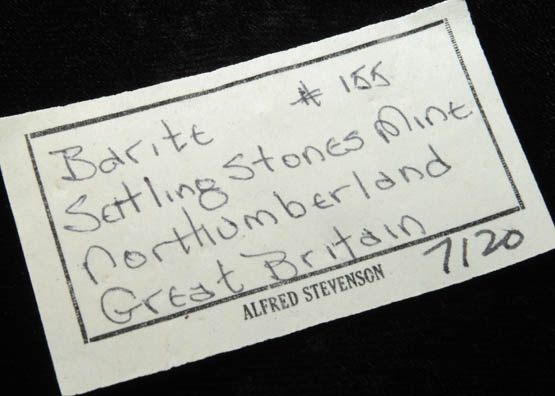 # 155
Barite
Settling Stones Mine
Northumberland
Great Britain
7120
ALFRED STEVENSON